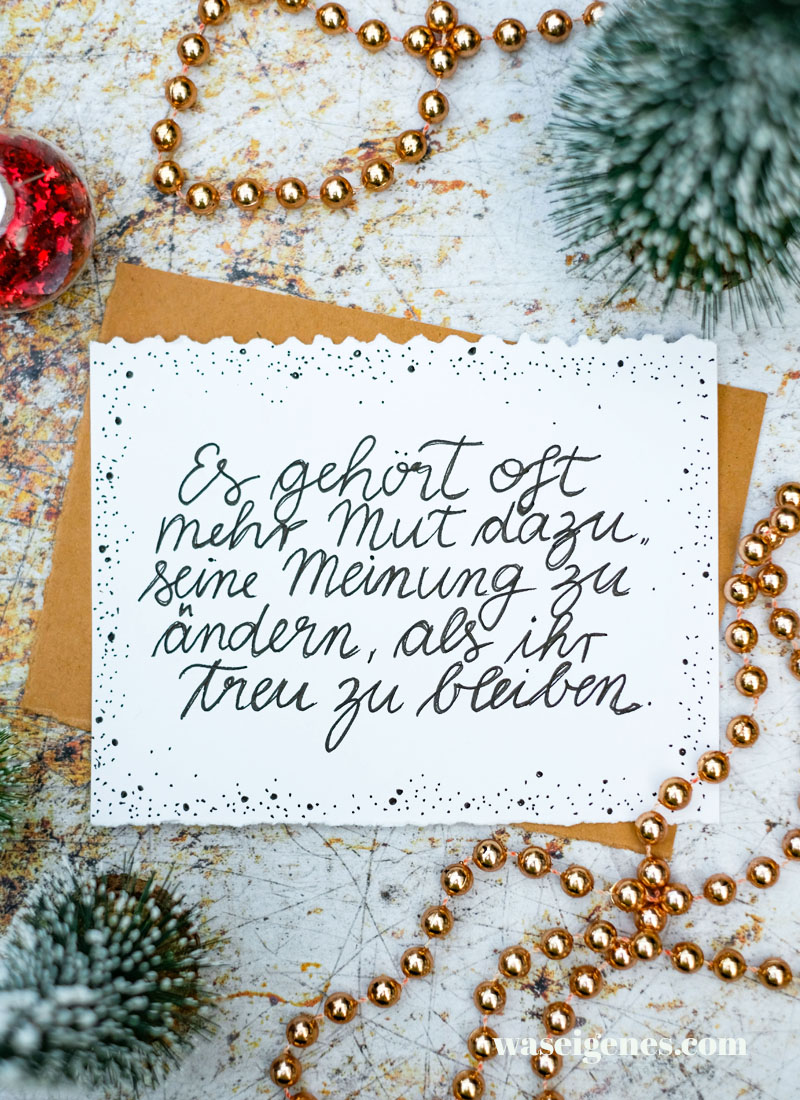 Es gehört oft
mehr Mut dazu,
seine Meinung zu
ändern, als ihr
treu zu bleiben.
waseigenes.com